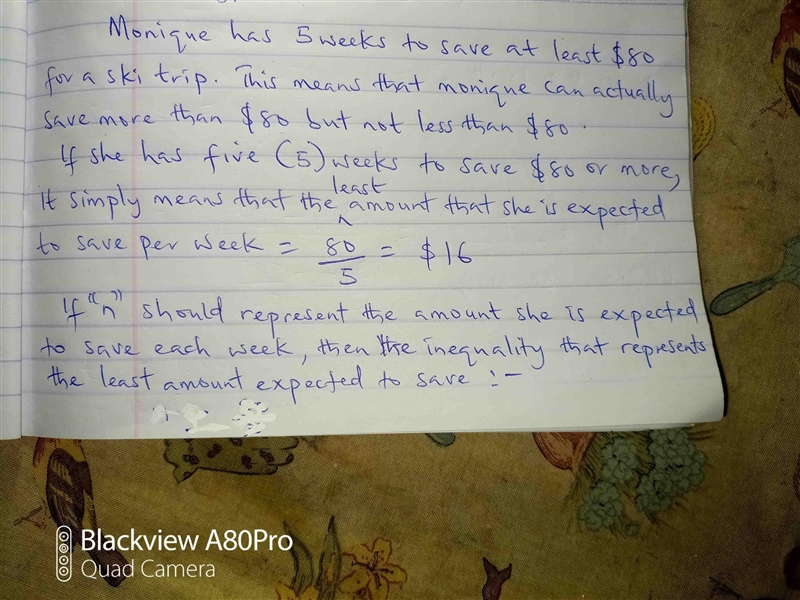 Monique has 5 weeks to save at least $80
for a ski trip. This means that monique can actually
save more than $80 but not less than $80.
If she has five (5) weeks to save $80 or more,
It simply means that the least amount that she is expected
to save per week = 80/5 = $16
If "n" should represent the amount she is expected
to save each week, then the inequality that represents
the least amount expected to save :-
Blackview A80Pro
Quad Camera